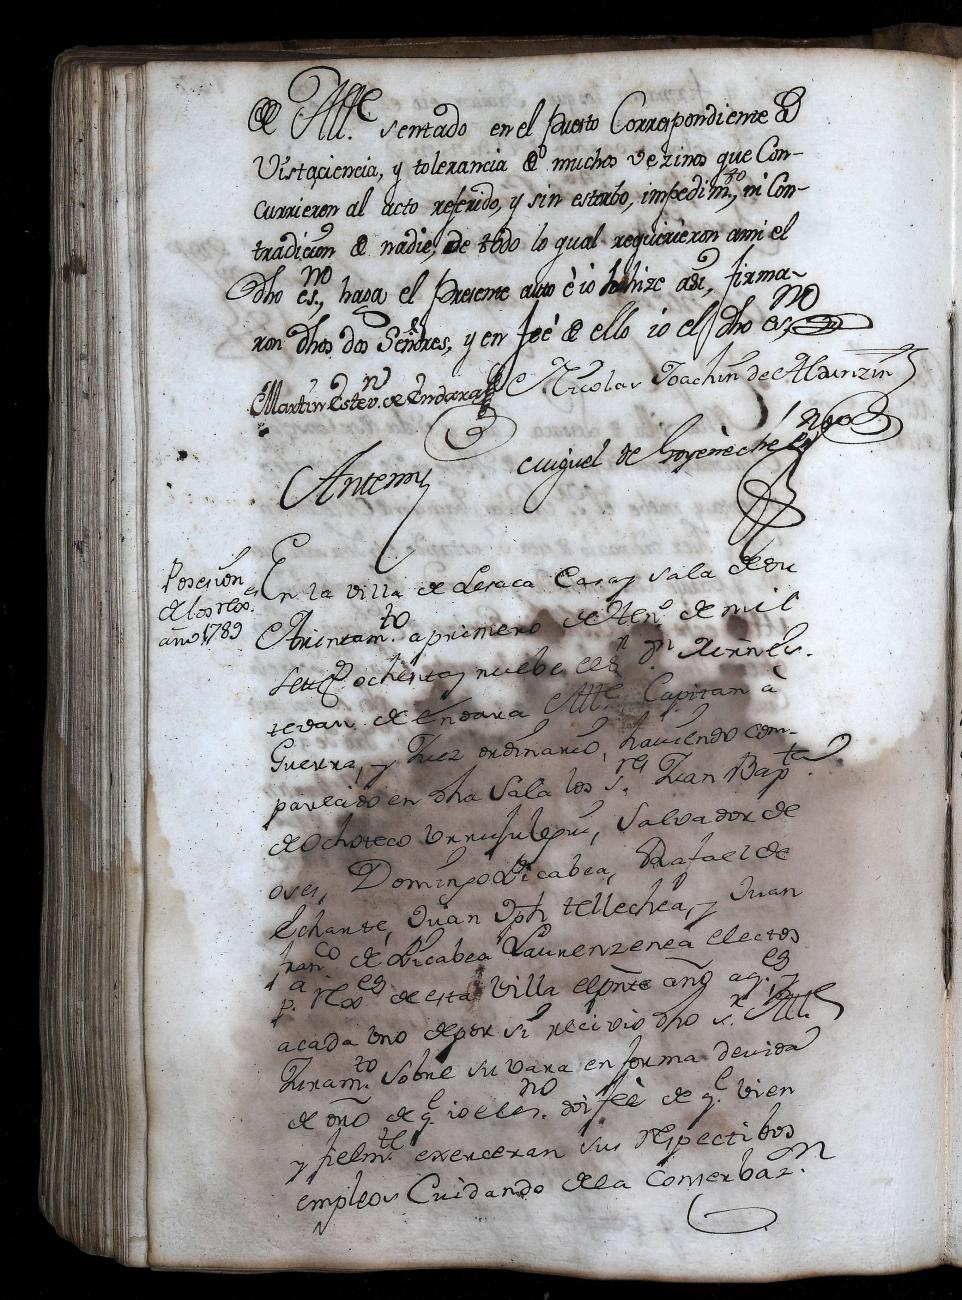 de Alle. sentado en el Puesto Correspondiente â
Vista, ciencia, y tolerancia de muchos vezinos que Con-
currieron al acto referido, y sin estorbo, impedim.to, ni Con-
tradicion de nadie, de todo lo qual requirieron ami el
dho es.no, haga el presente auto è io lo hize asi, firma-
ron dhos dos Señores, y en feè de ello io el dho es.no
Martin Estev.n de Endara Nicolas Joachin de Aldunzin
Antemi Miguel de Goyeneche es.no
Posesion
de los rex.es
año 1789
En la villa de Lesaca Casa y sala de su
Aiuntam.to a primero de Hen.o de mil
setez.s ochenta y nuebe el s.r dn Mrn Es-
tevan de Endara Alle. Capitan à
Guerra, y Juez ordinario, haviendo com-
parecido en dha sala los s.res Juan Bap.ta
de Ochoteco Salvador de
oses, Domingo Picabea, Rafael de
Echarte, Juan Jph tellechea, y Juan
fran.co de Picabea Laurenzenea electos
p.a rex.es de esta Villa elpnte año aq.es y
acada uno depor si recivio dho s.r Alle
Juram.to sobre su vara en forma devida
de dro de q.e io eles.no doi feè de q.e vien
y fielm.te exerceran sus respectibos
empleos Cuidando dela Conserbaz.n